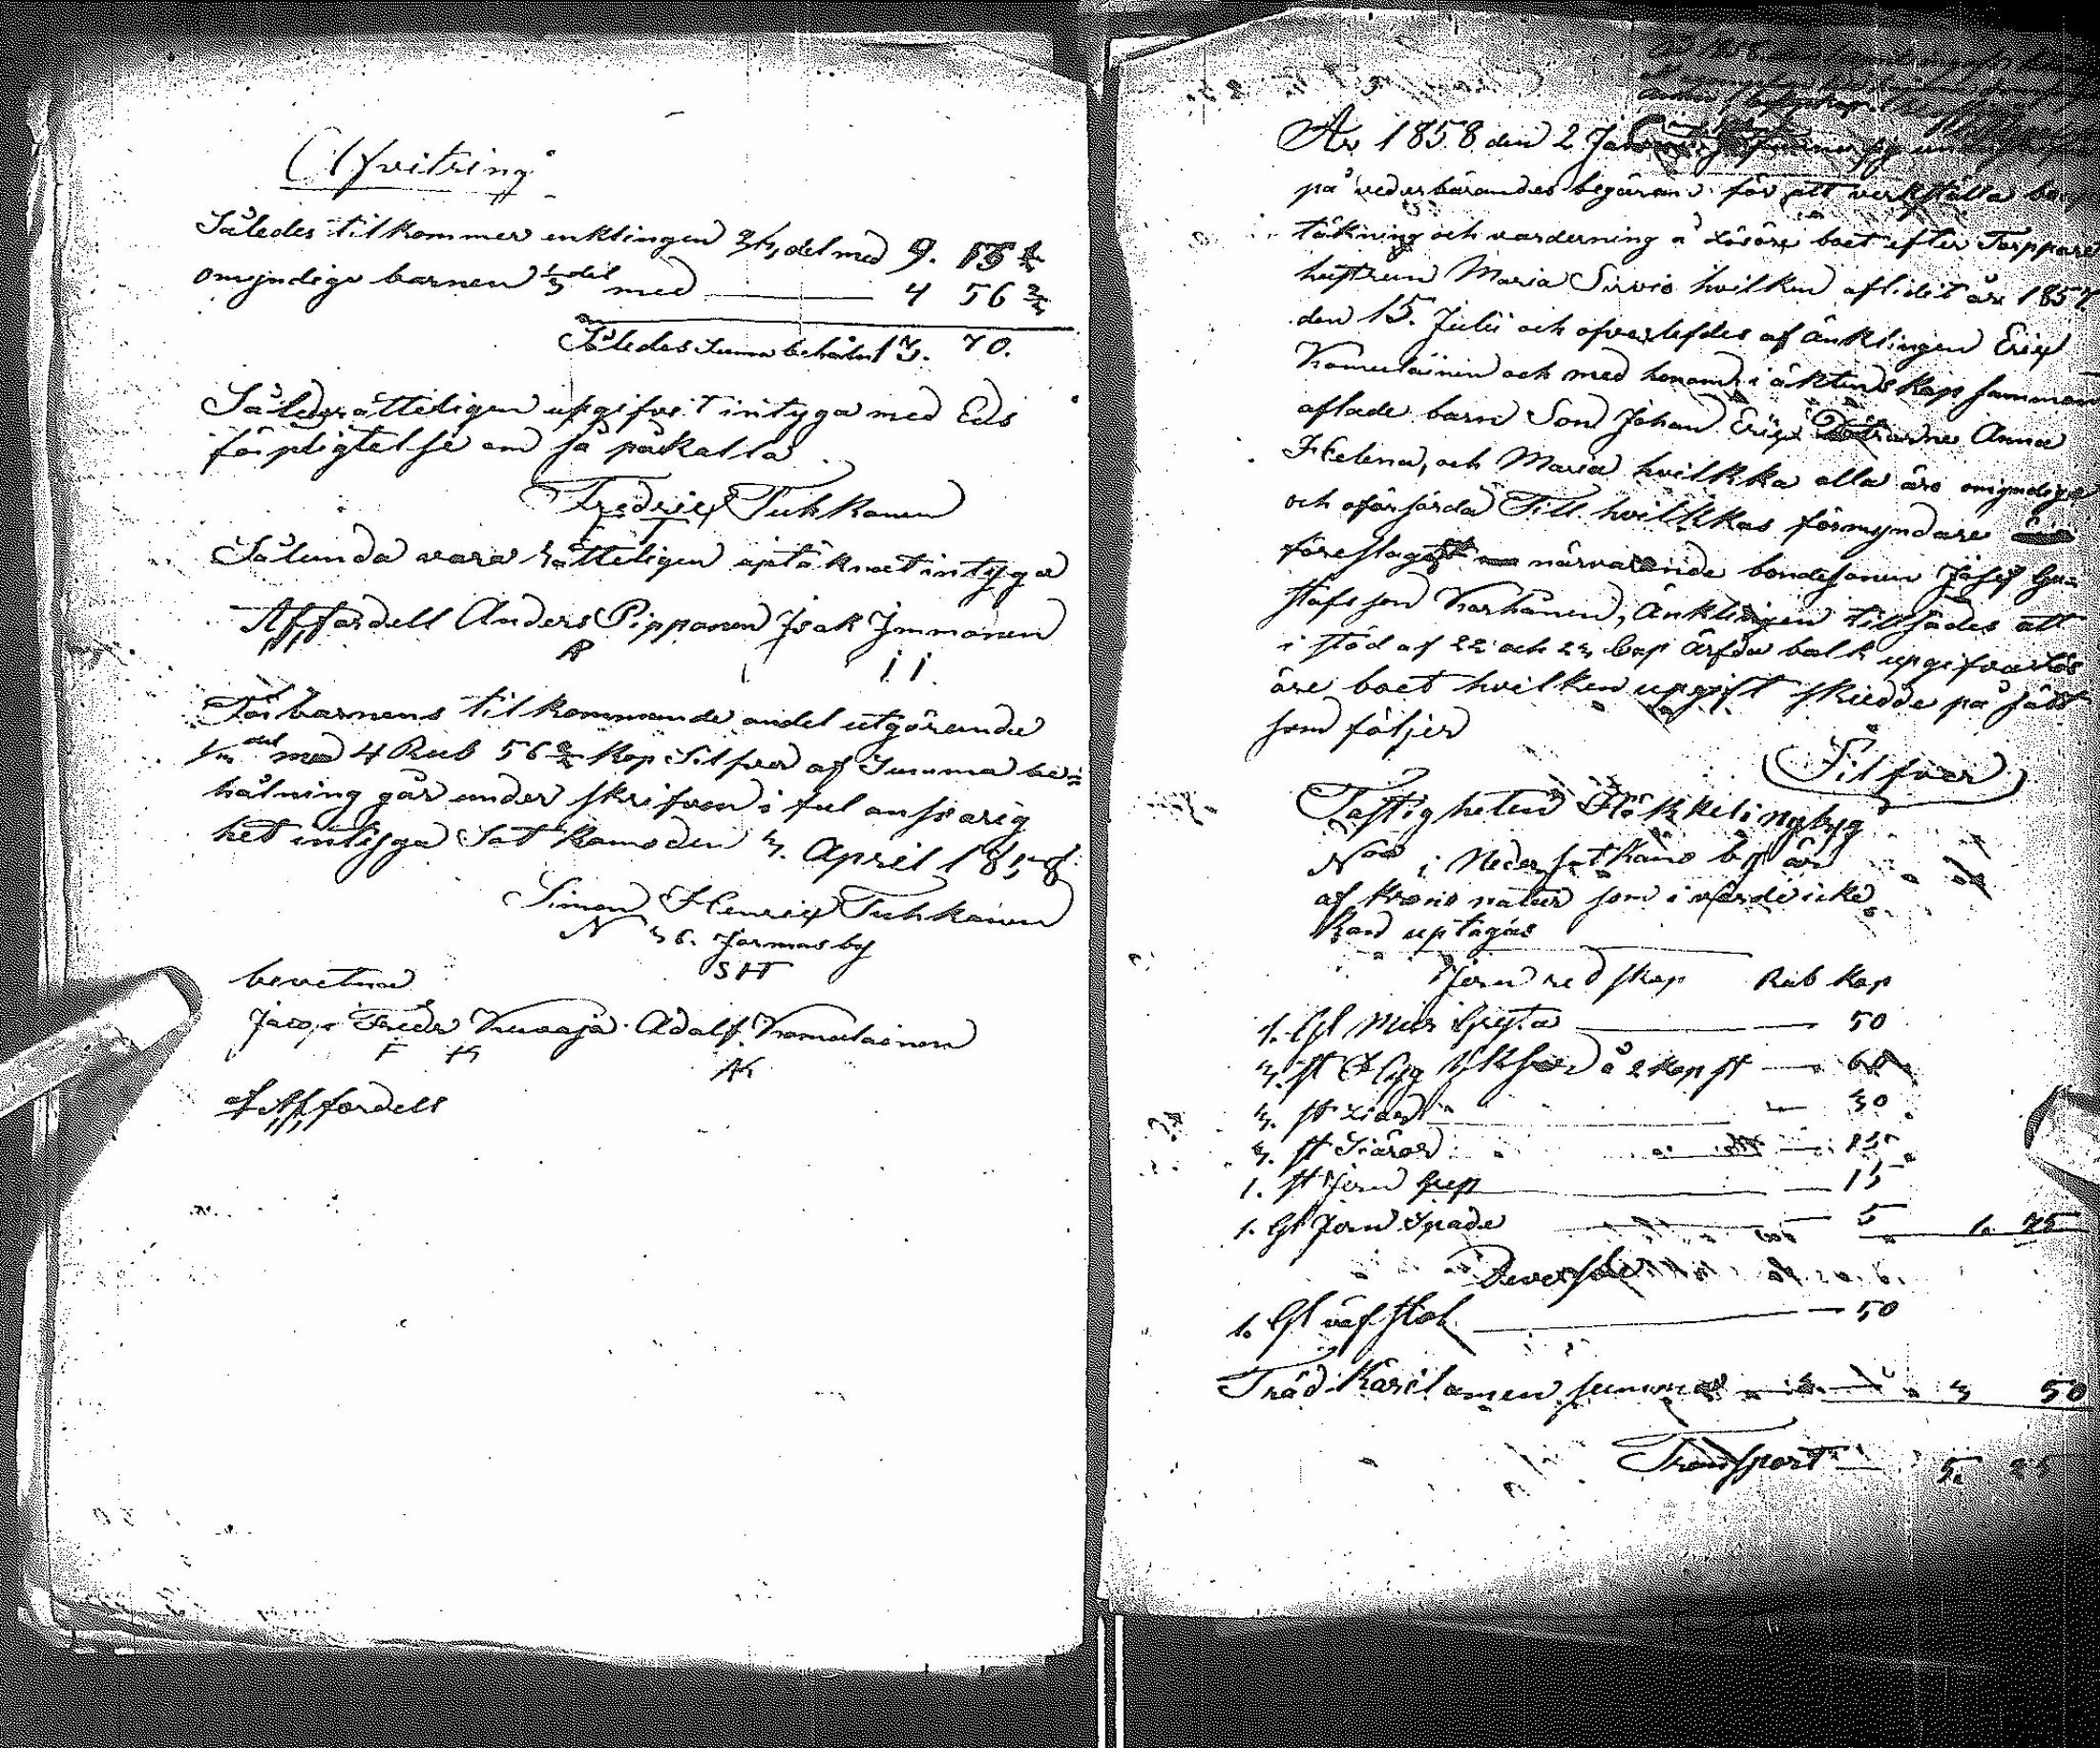 Afvitring
Således tilkommer enklingen 2/3 del med 9. 13 1/3
omyndige barnen 1/3 del med 4 56 2/3
Således Suma behåln 13. 70.
Således rätteligen upgifvit intyga med Eds
förpligtelse om så påkallas
Fredrich Tuhkanen
F T
Sålunda vara rätteligen uptäknat intyga
Aff fordell Anders Pipponen Isak Immonen
AP I I
För barnens tilkommande andel utgörande
1/3 del med 4 Rub 56 2/3 Kop Silfver af Summa be=
hålning går under skrifven i ful ansvarig
het intyga Sotkamo den 3. April 1858
Simon Henrich Tuhkanen
N 36. Jormasby
S H T
bevitna
Fredr Kuvaja Adolf Komulainen
F K AK
af Aff fordell
År 1858 den 2
på vederbärandes begäran för att verkställa
täkning och värderning å Lösöre boet efter Torppare
hustrun Maria Sirvio hvilken aflidit år 1857
den 15. Julii och öfverlefdes af änklingen Erich
Komulainen och med honom i äktenskap samman
aflade barn Son Johan Erich Döttrarne Anna
Helena, och Maria hvilkka alla äro omyndiga
och oförsörda Till hvilkkas förmyndare
föreslagit närvarande bondesonen Josef Gu=
stafsson Korhonen, Änklingen tillsades att
i stöd af 22 och 23 Cap Ärfda balk upgifva
boet hvilken upgift skedde på sätt
som följer
Silfver
Fastigheten nybyg
No i Neder Sotkamo by är
af Krono natur som i värde icke
kand uptagas
Jern redskap Rub Kop
1. Gl Mur Gryta 50
3. st yxor à 2 Kop st 60
3. st Liar 30
3. st Skäror 15
1. st Jern grep 15
1. Gl Jern Spade 5 1. 75
Diverse
1. Gl väfstol 50
Träd Käril amen summa 3 50
Transport 5. 25